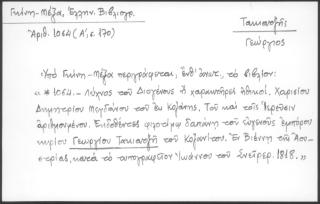 Γκίνη - Μέξα, Ἑλλην. Βιβλιογρ.
Ἀριθ. 1064 (Α΄, σ. 170)
Τακιατζῆς
Γεώργιος
Ὑπὸ Γκίνη - Μέξα περιγράφεται, ἔνθ' ἀνωτ., τὸ βιβλίον:
« * 1064. - Λύχνος τοῦ Διογένους ἢ χαρακτῆρες ἠθικοί. Χαρισίου
Δημητρίου Μεγδάνου τοῦ ἐκ Κοζάνης. Τοῦ καὶ τοῖς ἱερεῦσιν
ἀριθμουμένου. Ἐκδοθέντες φιλοτίμῳ δαπάνῃ τοῦ εὐγενοῦς ἐμπόρου
κυρίου Γεωργίου Τακιατζῆ τοῦ Κοζανίτου. Ἐν Βιέννῃ τῆς Αου-
στρίας, κατὰ τὸ τυπογραφεῖον Ἰωάννου τοῦ Σνείρερ. 1818. »